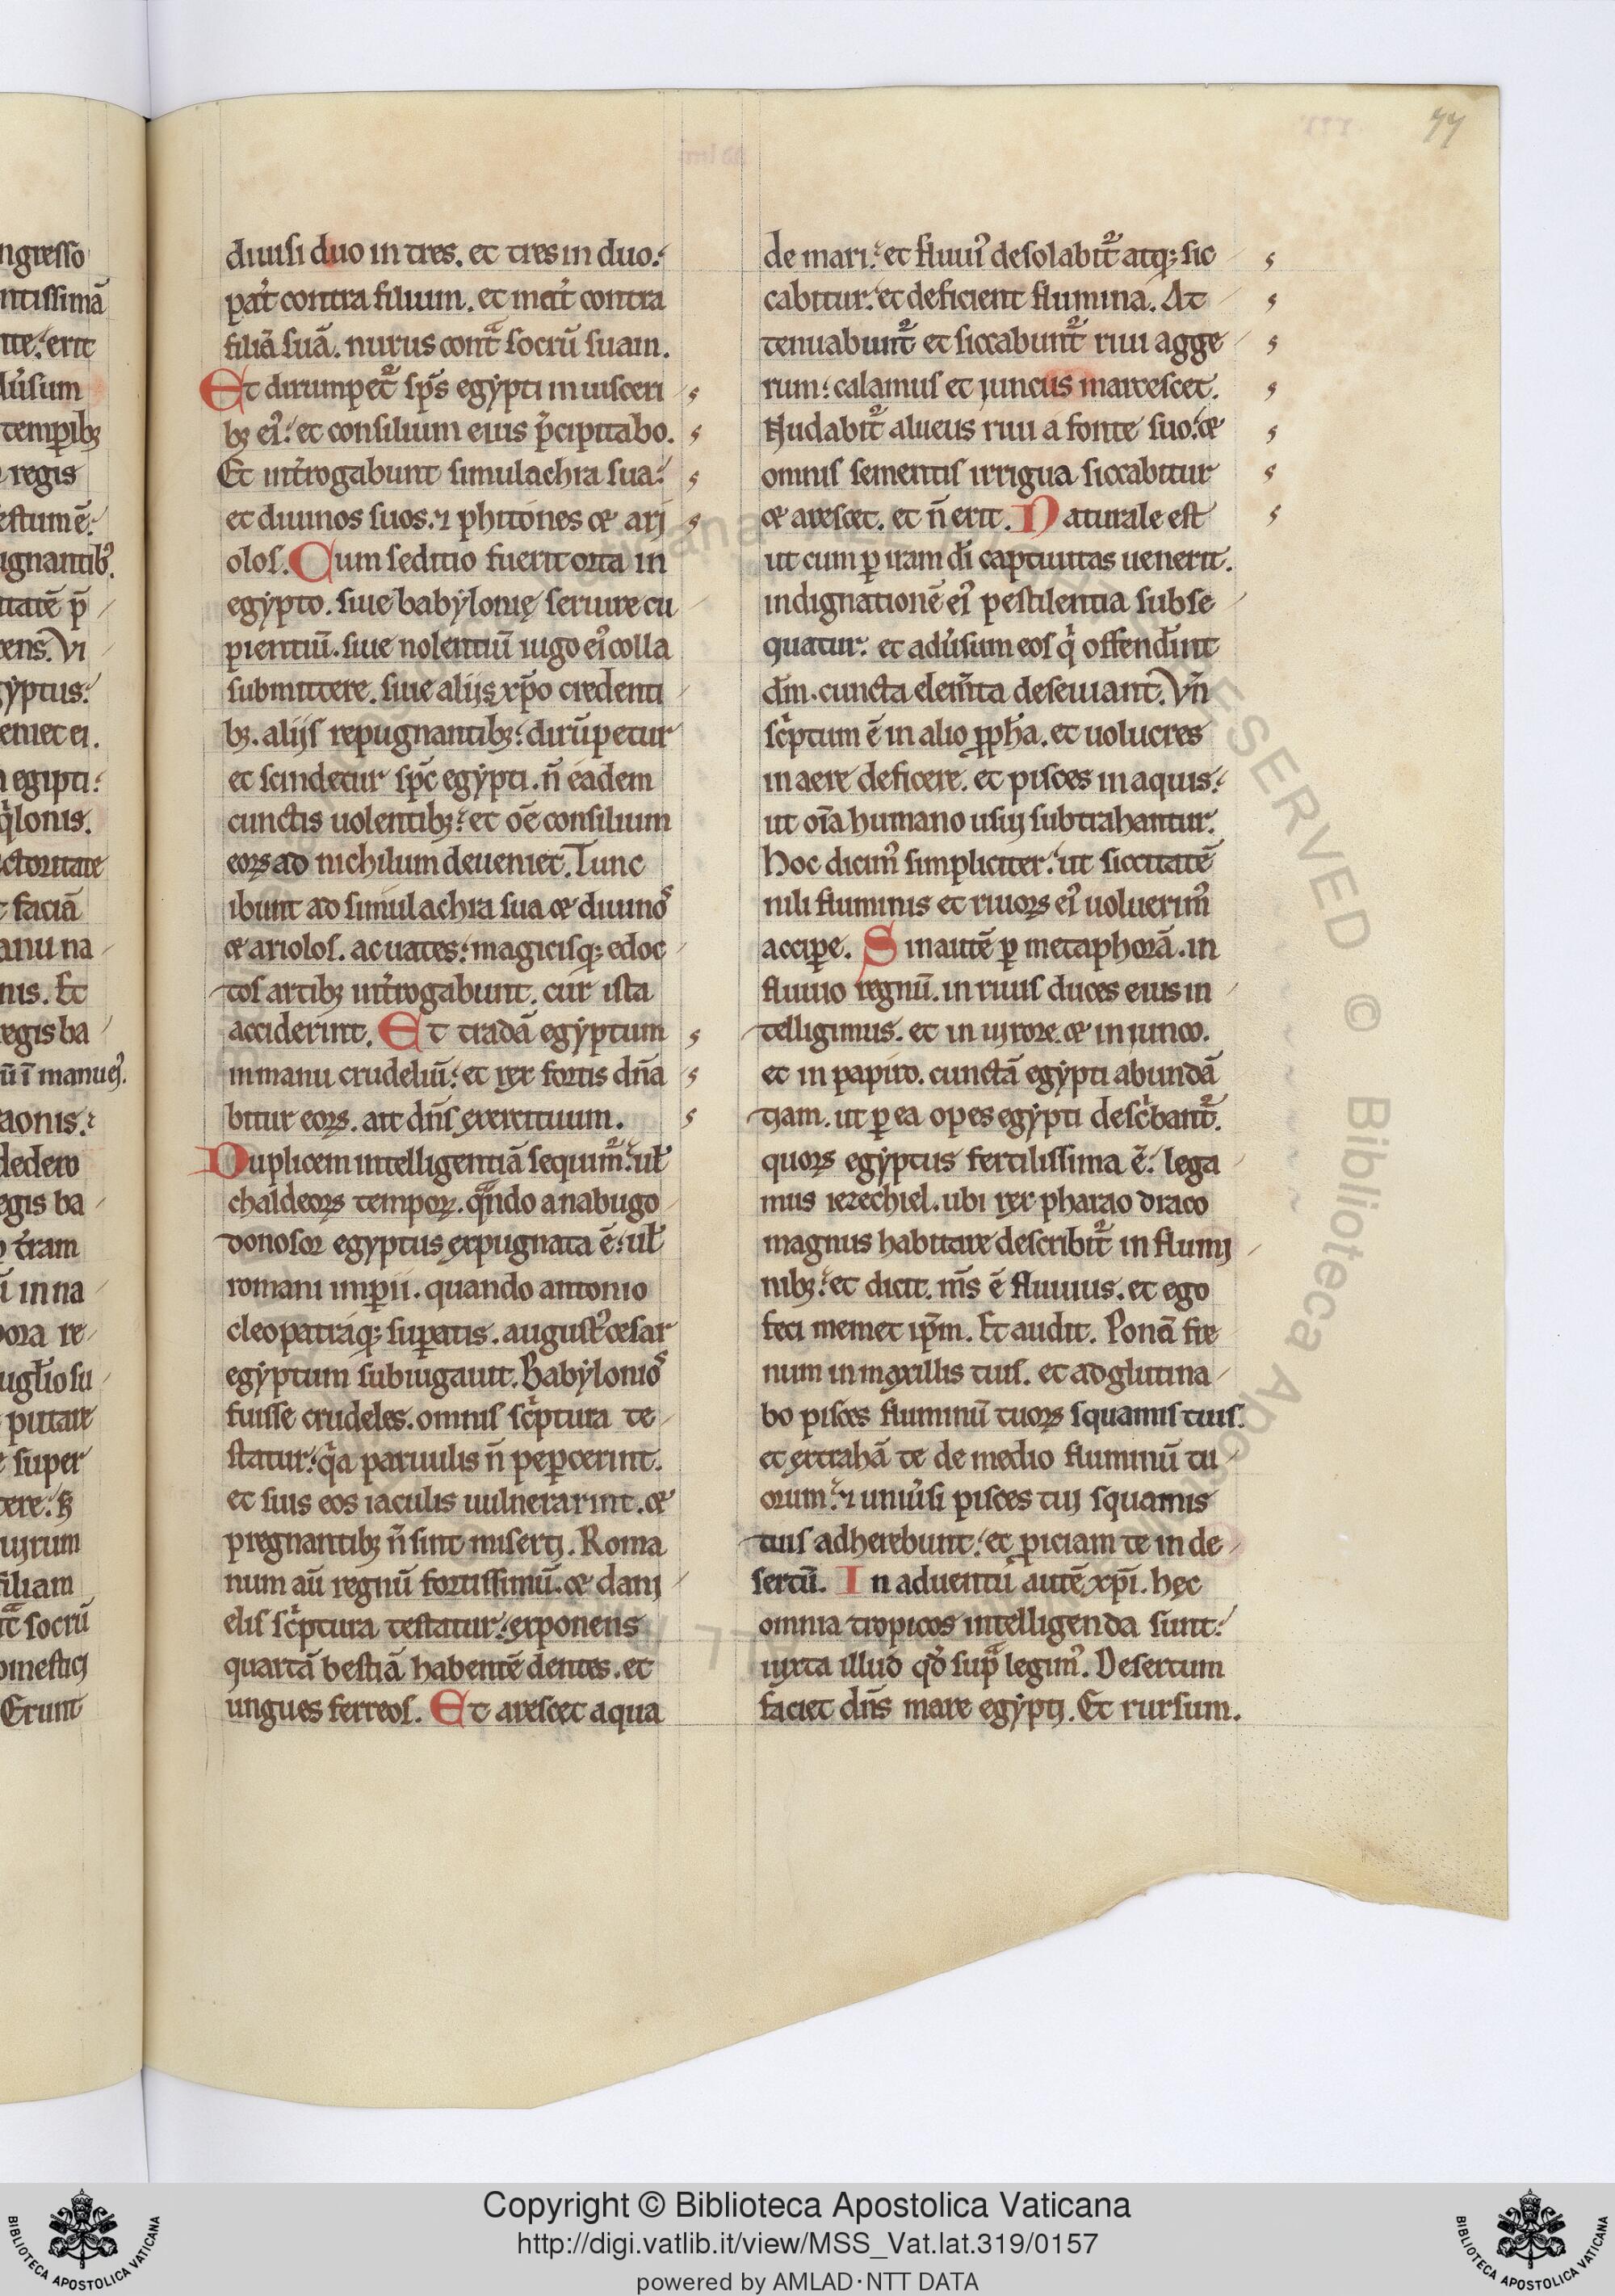 77
diuisi duo in tres. et tres in duo.
pat̉ contra filium. et mat̉ contra
filiā suā. nurus cont̃ socrū suam.
Et dirumpet᷑ sp̄s egẏpti in uisceri
bꝫ ei᷒. et consilium eius p̄cipitabo.
Et int̉rogabunt simulachra sua.
et diuinos suos. ⁊ phitones & arj
olos. Cum seditio fuerit orta in
egẏpto. siue babẏlonię seruire cu
pientiū. siue nolentiū iugo ei᷒ colla
submittere. siue alijs xp̄o credenti
bꝫ. alijs repugnantibꝫ. dirūpetur
et scindetur sp̄c egẏpti. n̄ eadem
cunctis uolentibꝫ. et oē consilium
eoꝝ ad nichilum deueniet. Tunc
ibunt ad simulachra sua & diuinos
& ariolos. ac uates. magicisqꝫ edoc
tos artibꝫ int̉rogabunt. cur ista
acciderint. Et tradā egẏptum
in manu crudeliū. et rex fortis dn̄a
bitur eoꝝ. ait dn̄s exercituum.
Duplicem intelligentiā sequim᷑. ut̄
chaldeoꝝ tempoꝝ. qͣndo a nabugo
donosor egyptus expugnata ē. ut̄
romani imꝑii. quando antonio
cleopatraqꝫ suꝑatis. august᷒ cesar
egẏptum subiugauit. Babẏlonios
fuisse crudeles. omnis sc̉ptura te
statur. q̉a paruulis n̄ peꝑcerint.
et suis eos iaculis uulnerarint. &
pregnantibꝫ n̄ sint misertj. Roma
num aū regnū fortissimū. & danj
elis sc̉ptura testatur. exponens
quartā bestiā habentē dentes. et
ungues ferreos. Et arescet aqua
de mari. et fluui᷒ desolabit᷑ atqꝫ sic
cabitur. et deficient flumina. At
tenuabunt᷑ et siccabunt᷑ riui agge
rum. calamus et juncus marcescet.
Nudabit᷑ alueus riui a fonte suo. &
omnis sementis irrigua siccabitur
& arescet. et n̄ erit. Naturale est
ut cum ꝑ iram dī captiuitas uenerit.
indignationē ei᷒ pestilentia subse
quatur. et adu̓sum eos q̉ offend̓int
dm̄. cuncta elem̄ta deseuiant. Vn̄
sc̉ptum ē in alio ꝓph̄a. et uolucres
in aere deficere. et pisces in aquis.
ut oīa humano usuj subtrahantur.
Hoc dicim᷒ simpliciter. ut siccitatē
nili fluminis et riuoꝝ ei᷒ uoluerim᷒
acciꝑe. Sin autē ꝑ metaphorā. in
fluuio regnū. in riuis duces eius in
telligimus. et in uirore. & in junco.
et in papiro. cunctā egẏpti abundā
tiam. ut ꝑ ea opes egẏpti desc̉bant᷑.
quoꝝ egẏptus fertilissima ē. lega
mus iezechiel. ubi rex pharao draco
magnus habitare describit᷑ in flumj
nibꝫ. et dicit. m̄s ē fluuius. et ego
feci memet ip̄m. Et audit. Ponā fre
num in maxillis tuis. et adglutina
bo pisces fluminū tuoꝝ squamis tuis.
et extrahā te de medio fluminū tu
orum. ⁊ uniu̓si pisces tuj squamis
tuis adherebunt. et ꝓiciam te in de
sertū. In aduentū autē xp̄i. hęc
omnia tropicos intelligenda sunt.
iuxta illud qd̓ supͣ legim᷒. Desertum
faciet dn̄s mare egẏptj. Et rursum.
Copyright © Biblioteca Apostolica Vaticana
http://digi.vatlib.it/view/MSS_Vat.lat.319/0157
powered by AMLAD·NTT DATA